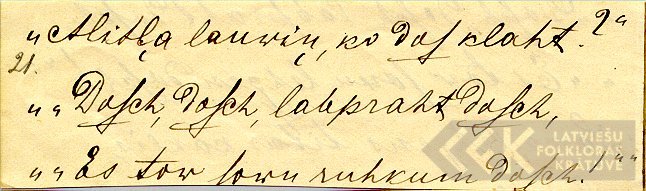 „Alitļa lauwiņ, ko dos klaht?“
21.
„„Dosch, dosch, labpraht dosch,
„„Es tow sowu ruhkum dosch!““
LATVIEŠU
FOLKLORAS
KRĀTUVE